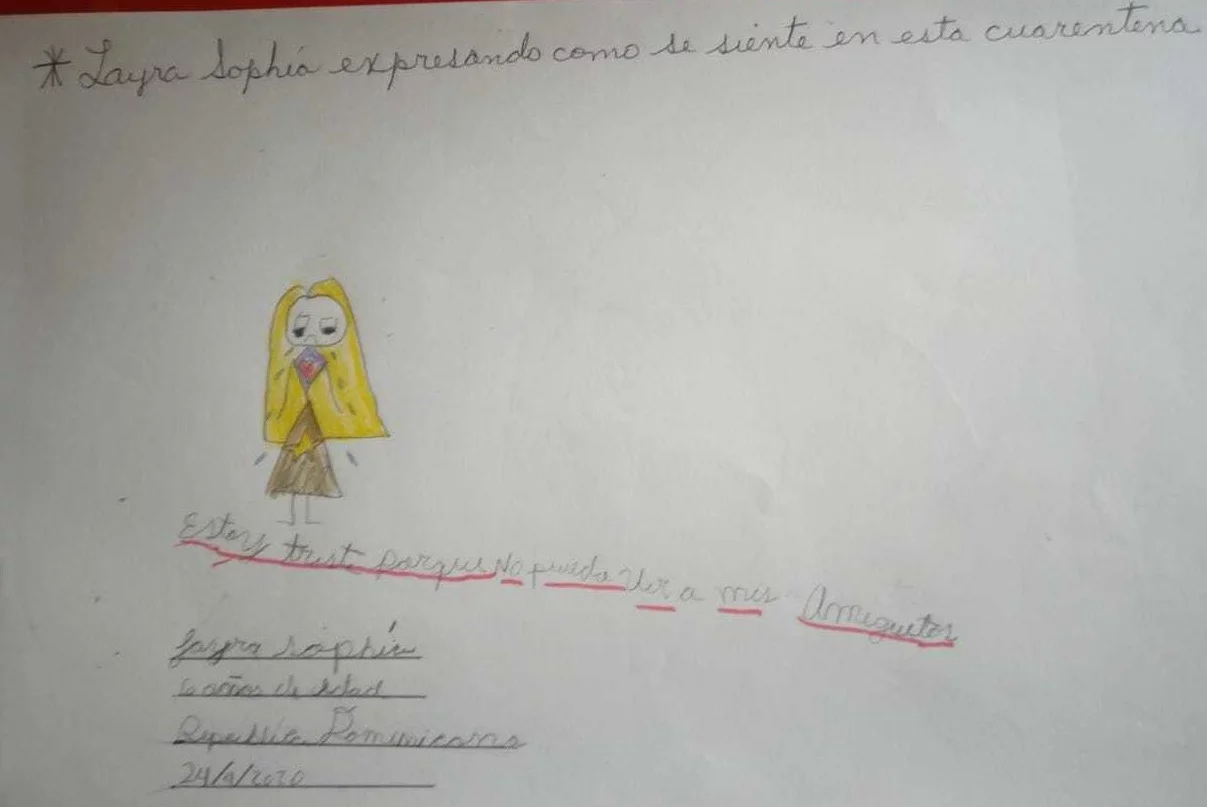 * Layra Sophía expresando como se siente en esta cuarentena
Estoy triste porque No puedo Ver a mis Amiguitos
Layra Sophía
6 años de edad
Republica Dominicana
24/4/2020